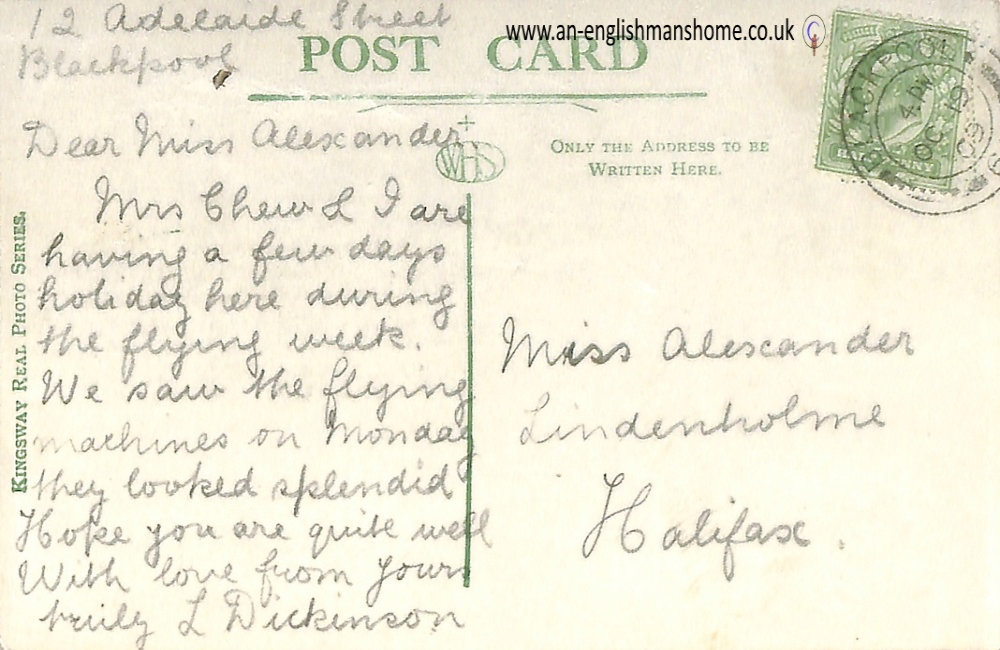 12 Adelaide Street
Blackpool
www.an-englishmanshome.co.uk
POST CARD
Dear Miss Alexander
Mrs Chew & I are
having a few days
holiday here during
the flying week.
We saw the flying
machines on Monday
they looked splendid
Hope you are quite well
With love from yours
truly L Dickinson
WHS
ONLY THE ADDRESS TO BE
WRITTEN HERE.
BLACKPOOL
4 PM
OC 19
09
Miss Alexander
Lindenholme
Halifax.
KINGSWAY REAL PHOTO SERIES.